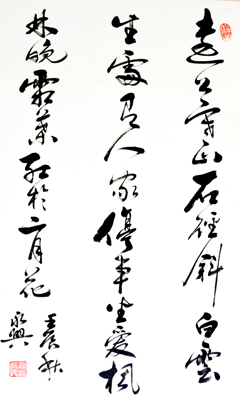 遠上寒山石徑斜白雲
生處有人家停車坐愛楓
林晚霜葉紅於二月花
壬辰秋
永興